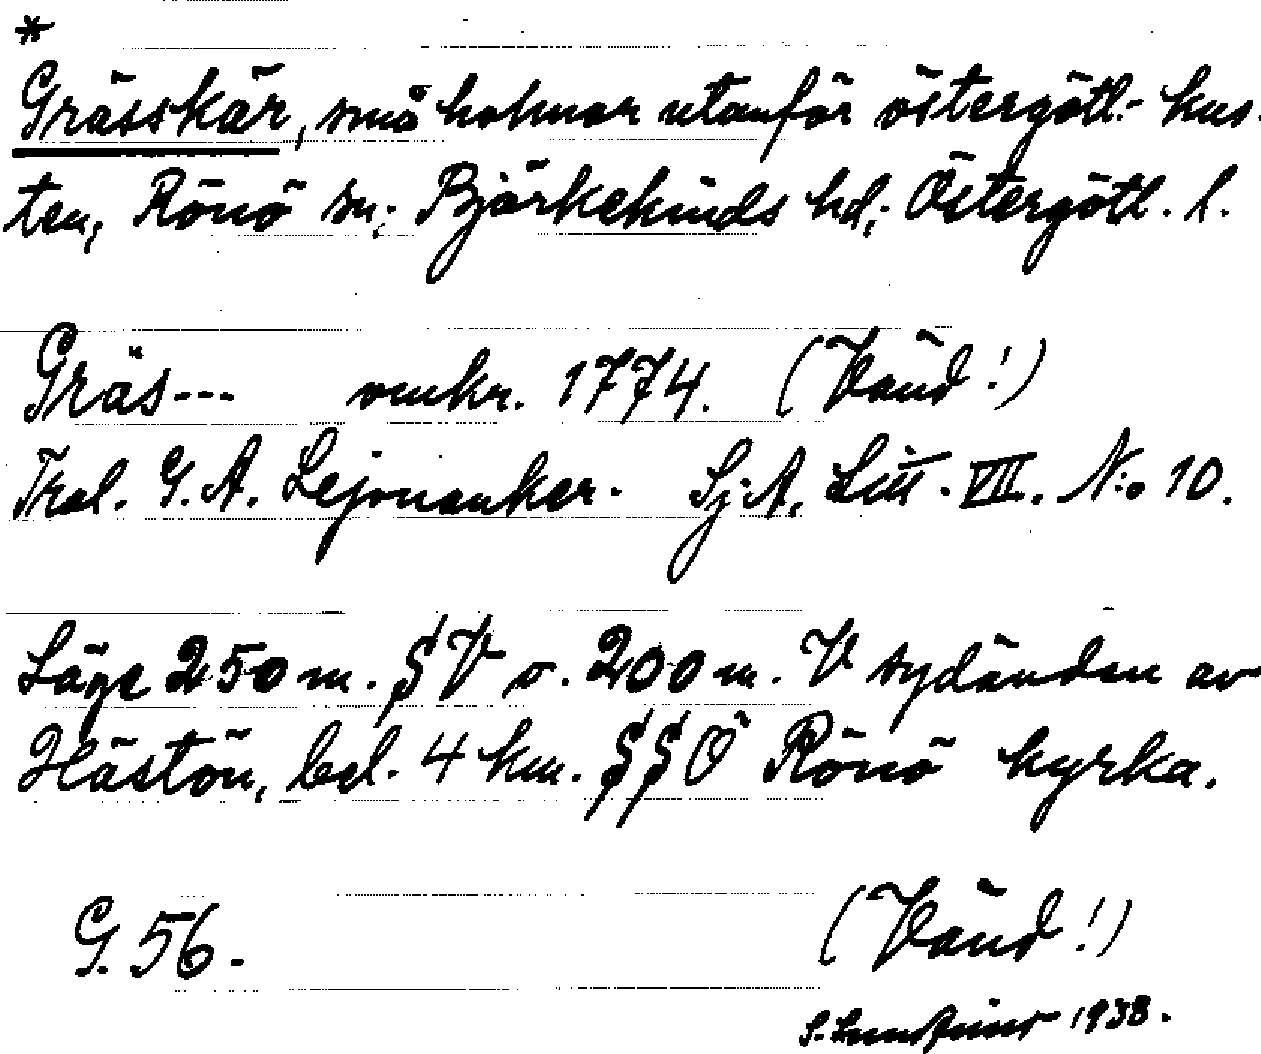 *
Grässkär, små holmar utanför östergötl. kus-
ten, Rönö sn; Björkekinds hd; Östergötl. l.
Gräs--- omkr. 1774. (Vänd!)
Tral. G. A. Lejonanker. Sj. A. Litt. VII. N:o 10.
Läge 250 m. SV o. 200 m. V sydänden av
Hästön, bel. 4 km. SSÖ Rönö kyrka.
G. 56. (Vänd!)
1938.